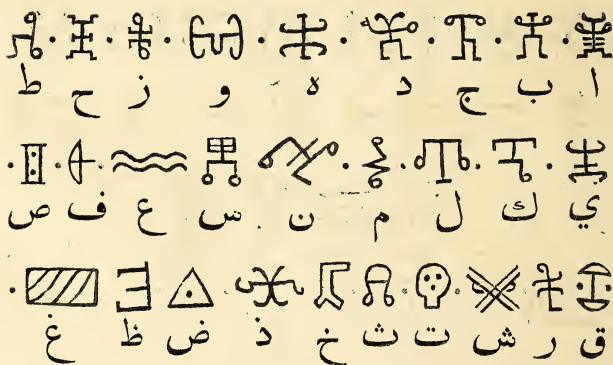 ا ب ج د ه و ز ح ط
ي ك ل م ن س ع ف ص
ق ر ش ت ث خ ذ ض ظ غ